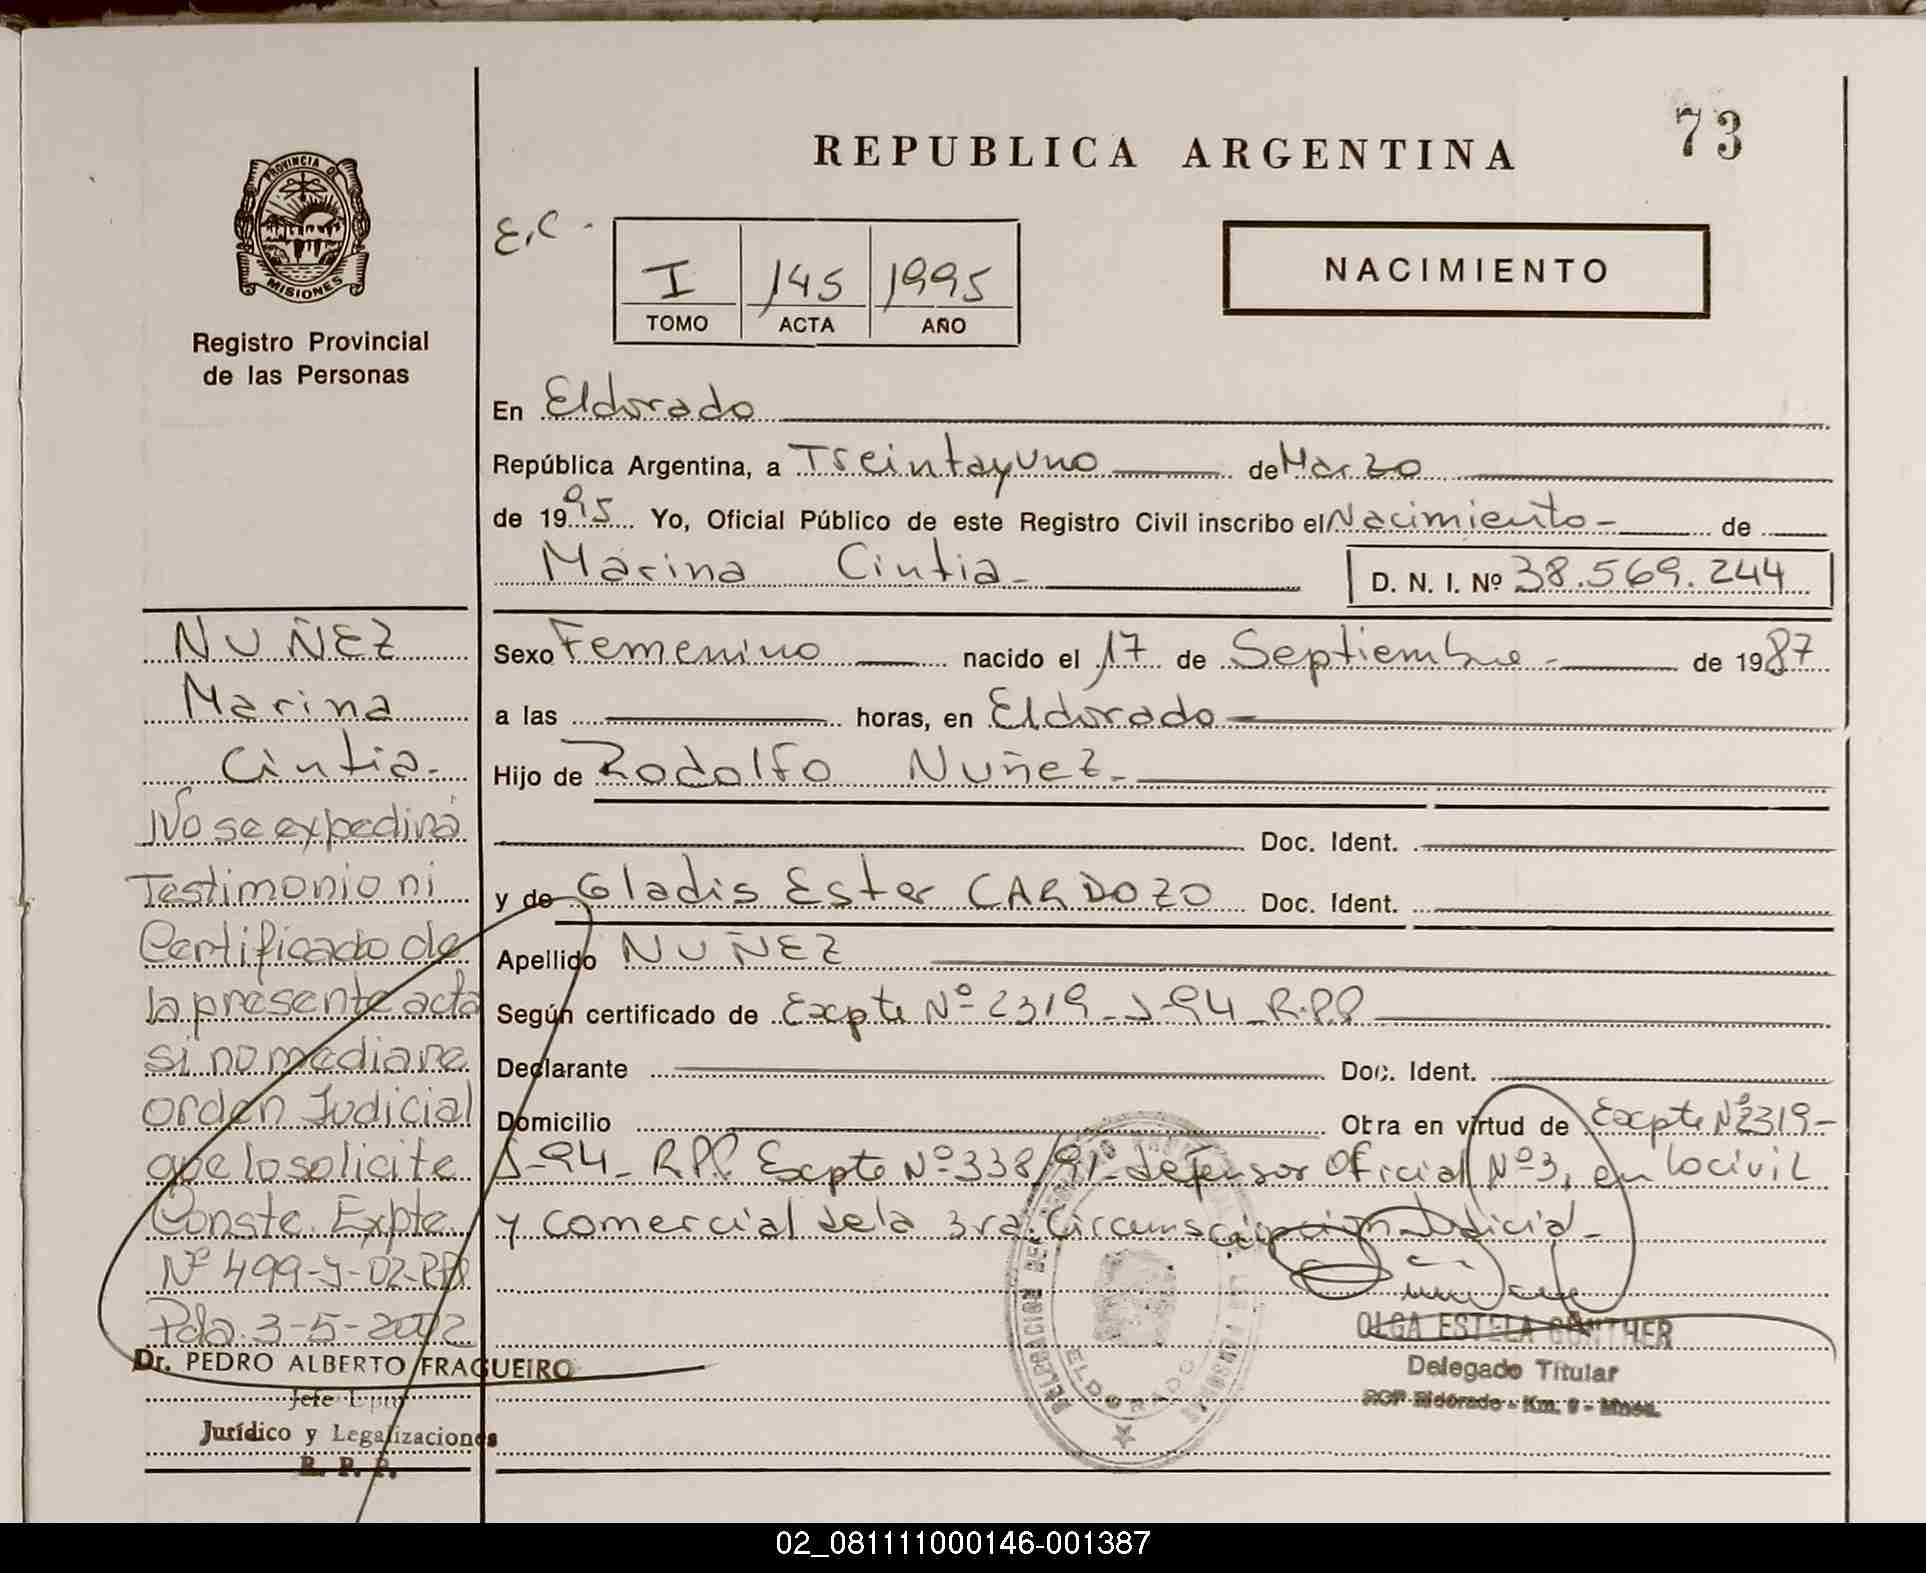 73
REPUBLICA ARGENTINA
PROVINCIA DE
MISIONES
Registro Provincial
de las Personas
E.C.
I 145 1995
TOMO ACTA AÑO
NACIMIENTO
En Eldorado
República Argentina, a Treintayuno de Marzo
de 1995 Yo, Oficial Público de este Registro Civil inscribo el Nacimiento - de
Marina Cintia - D. N. I. Nº 38.569.244
Sexo Femenino nacido el 17 de Septiembre - de 1987
a las horas, en Eldorado
Hijo de Rodolfo Nuñez -
Doc. Ident.
y de Gladis Ester CARDOZO Doc. Ident.
Apellido NUÑEZ
Según certificado de Expte Nº 2319-J-94-R.P.P
Declarante Doc. Ident.
Domicilio Otra en virtud de Expte Nº2319-
J-94-R.P.P. Expte Nº 338/91 defensor Oficial Nº3, en lo civil
y comercial de la 3ra. Circunscripcion Judicial -
NUÑEZ
Marina
Cintia -
No se expedirá
Testimonio ni
Certificado de
la presente acta
si no mediare
orden Judicial
que lo solicite
Conste. Expte.
Nº 499-J-02-RPP
Pda. 3-5-2002
Dr. PEDRO ALBERTO FRAGUEIRO
Jefe Dpto
Jurídico y Legalizaciones
R. P. P.
ELDORADO
OLGA ESTELA GUNTHER
Delegado Titular
RCP Eldorado - Km. 9 - Mnes.
02_081111000146-001387